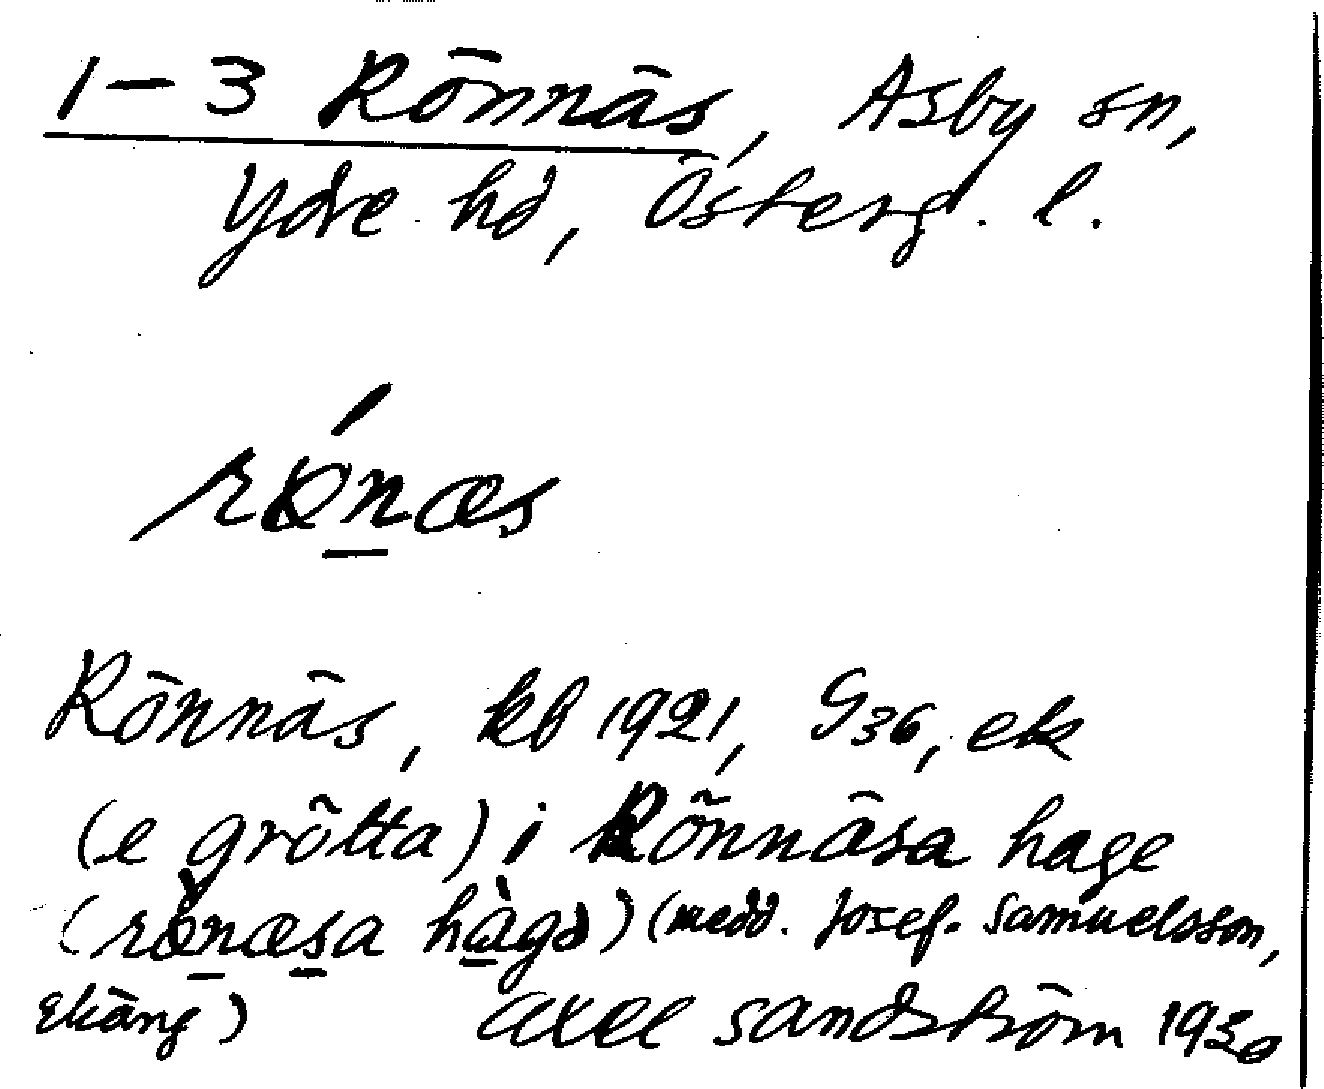 1-3 Rönnäs, Asby sn,
Ydre hd, Österg. l.
Rönnäs, kb 1921, G36, ek
(e grötta) i Rönnäsa hage
(medd. Josef. Samuelsson,
Ekäng) Axel Sandström 1930